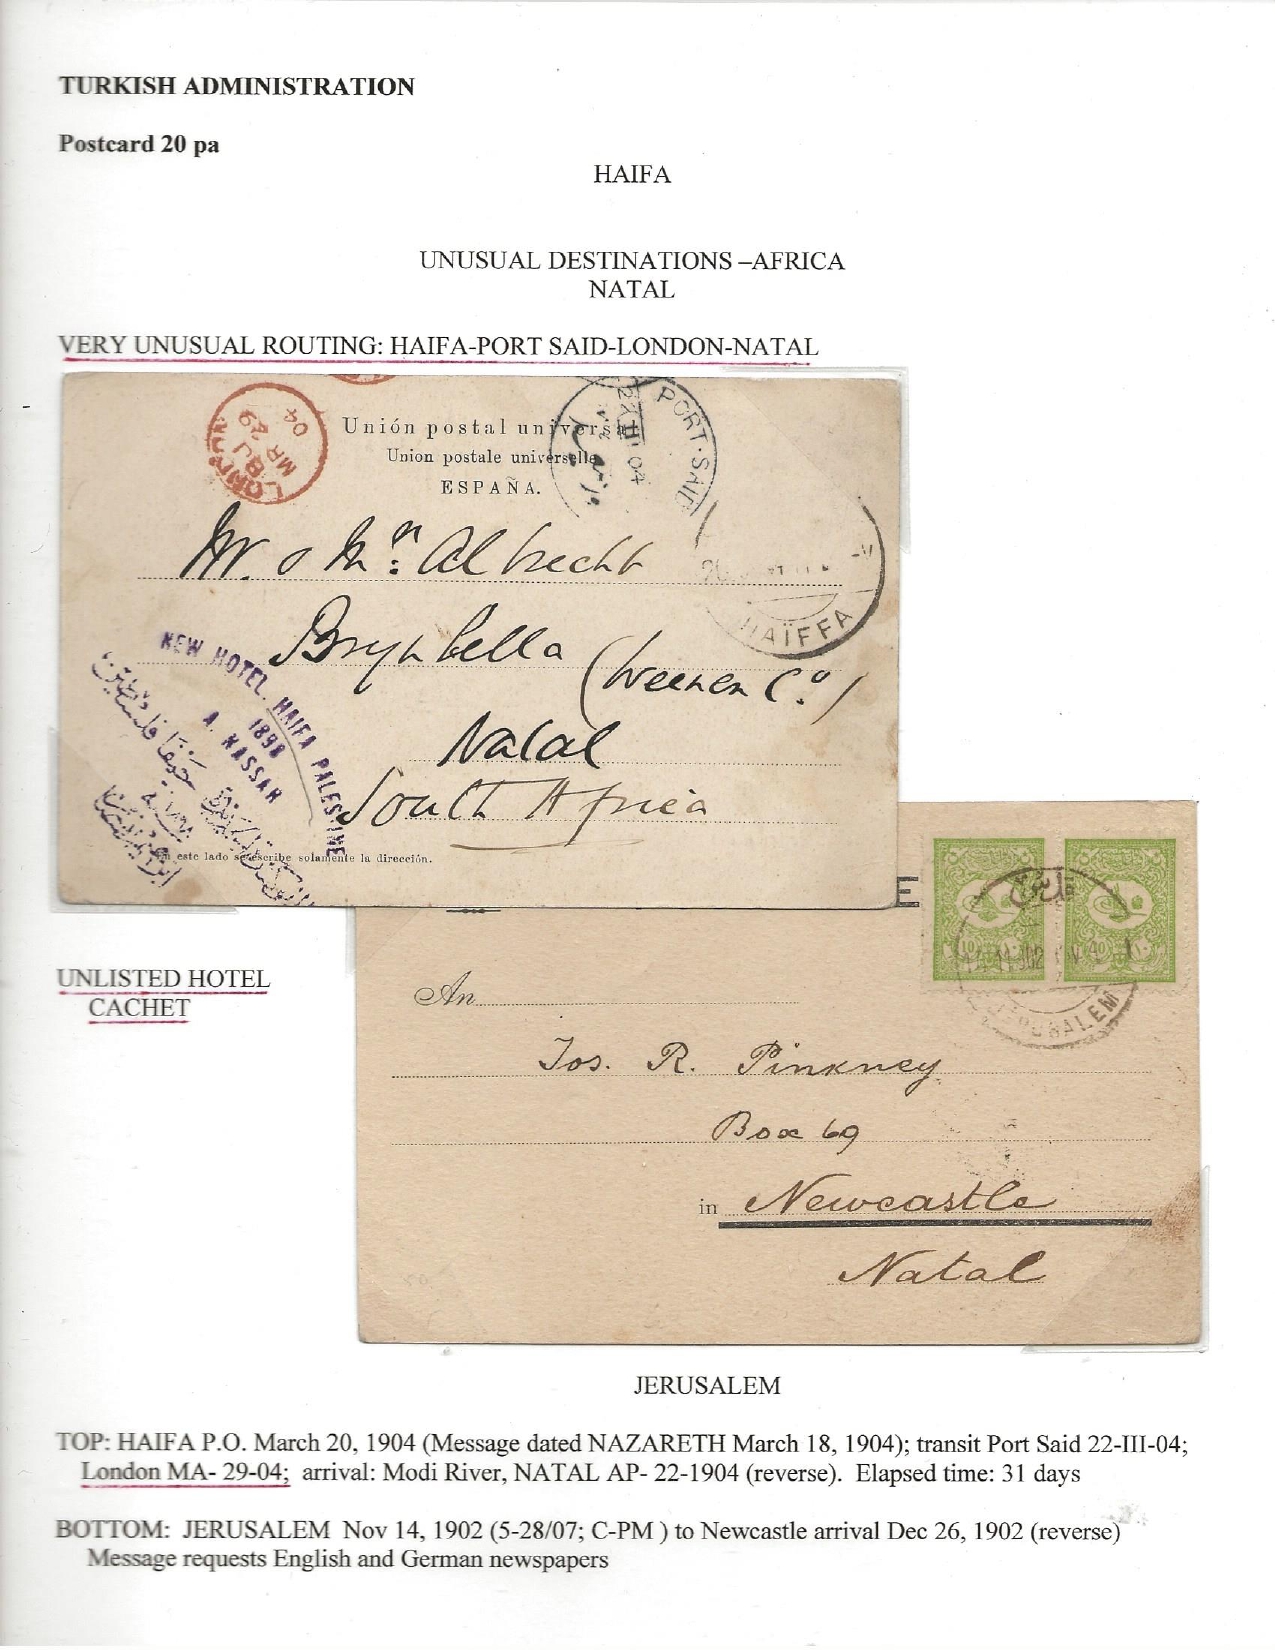 TURKISH ADMINISTRATION
Postcard 20 pa
HAIFA
UNUSUAL DESTINATIONS –AFRICA
NATAL
VERY UNUSUAL ROUTING: HAIFA-PORT SAID-LONDON-NATAL
LONDON
BJ
MR 29
04
Unión postal universal
Union postale universelle
ESPAÑA.
PORT-SAID
22 III 04
HAÏFFA
Mr. & Mrs: Albrecht
Brynbella
(Weenen Co)
Natal
South Africa
NEW HOTEL. HAIFA PALESTINE
1898
A. NASSAR
En este lado se escribe solamente la dirección.
UNLISTED HOTEL
CACHET
E
10 10
JERUSALEM
An
Jos. R. Pinkney
Box 69
in Newcastle
Natal
JERUSALEM
TOP: HAIFA P.O. March 20, 1904 (Message dated NAZARETH March 18, 1904); transit Port Said 22-III-04;
London MA- 29-04; arrival: Modi River, NATAL AP- 22-1904 (reverse). Elapsed time: 31 days
BOTTOM: JERUSALEM Nov 14, 1902 (5-28/07; C-PM ) to Newcastle arrival Dec 26, 1902 (reverse)
Message requests English and German newspapers